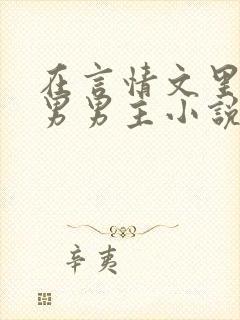 在言情文里
男男主小说
辛夷